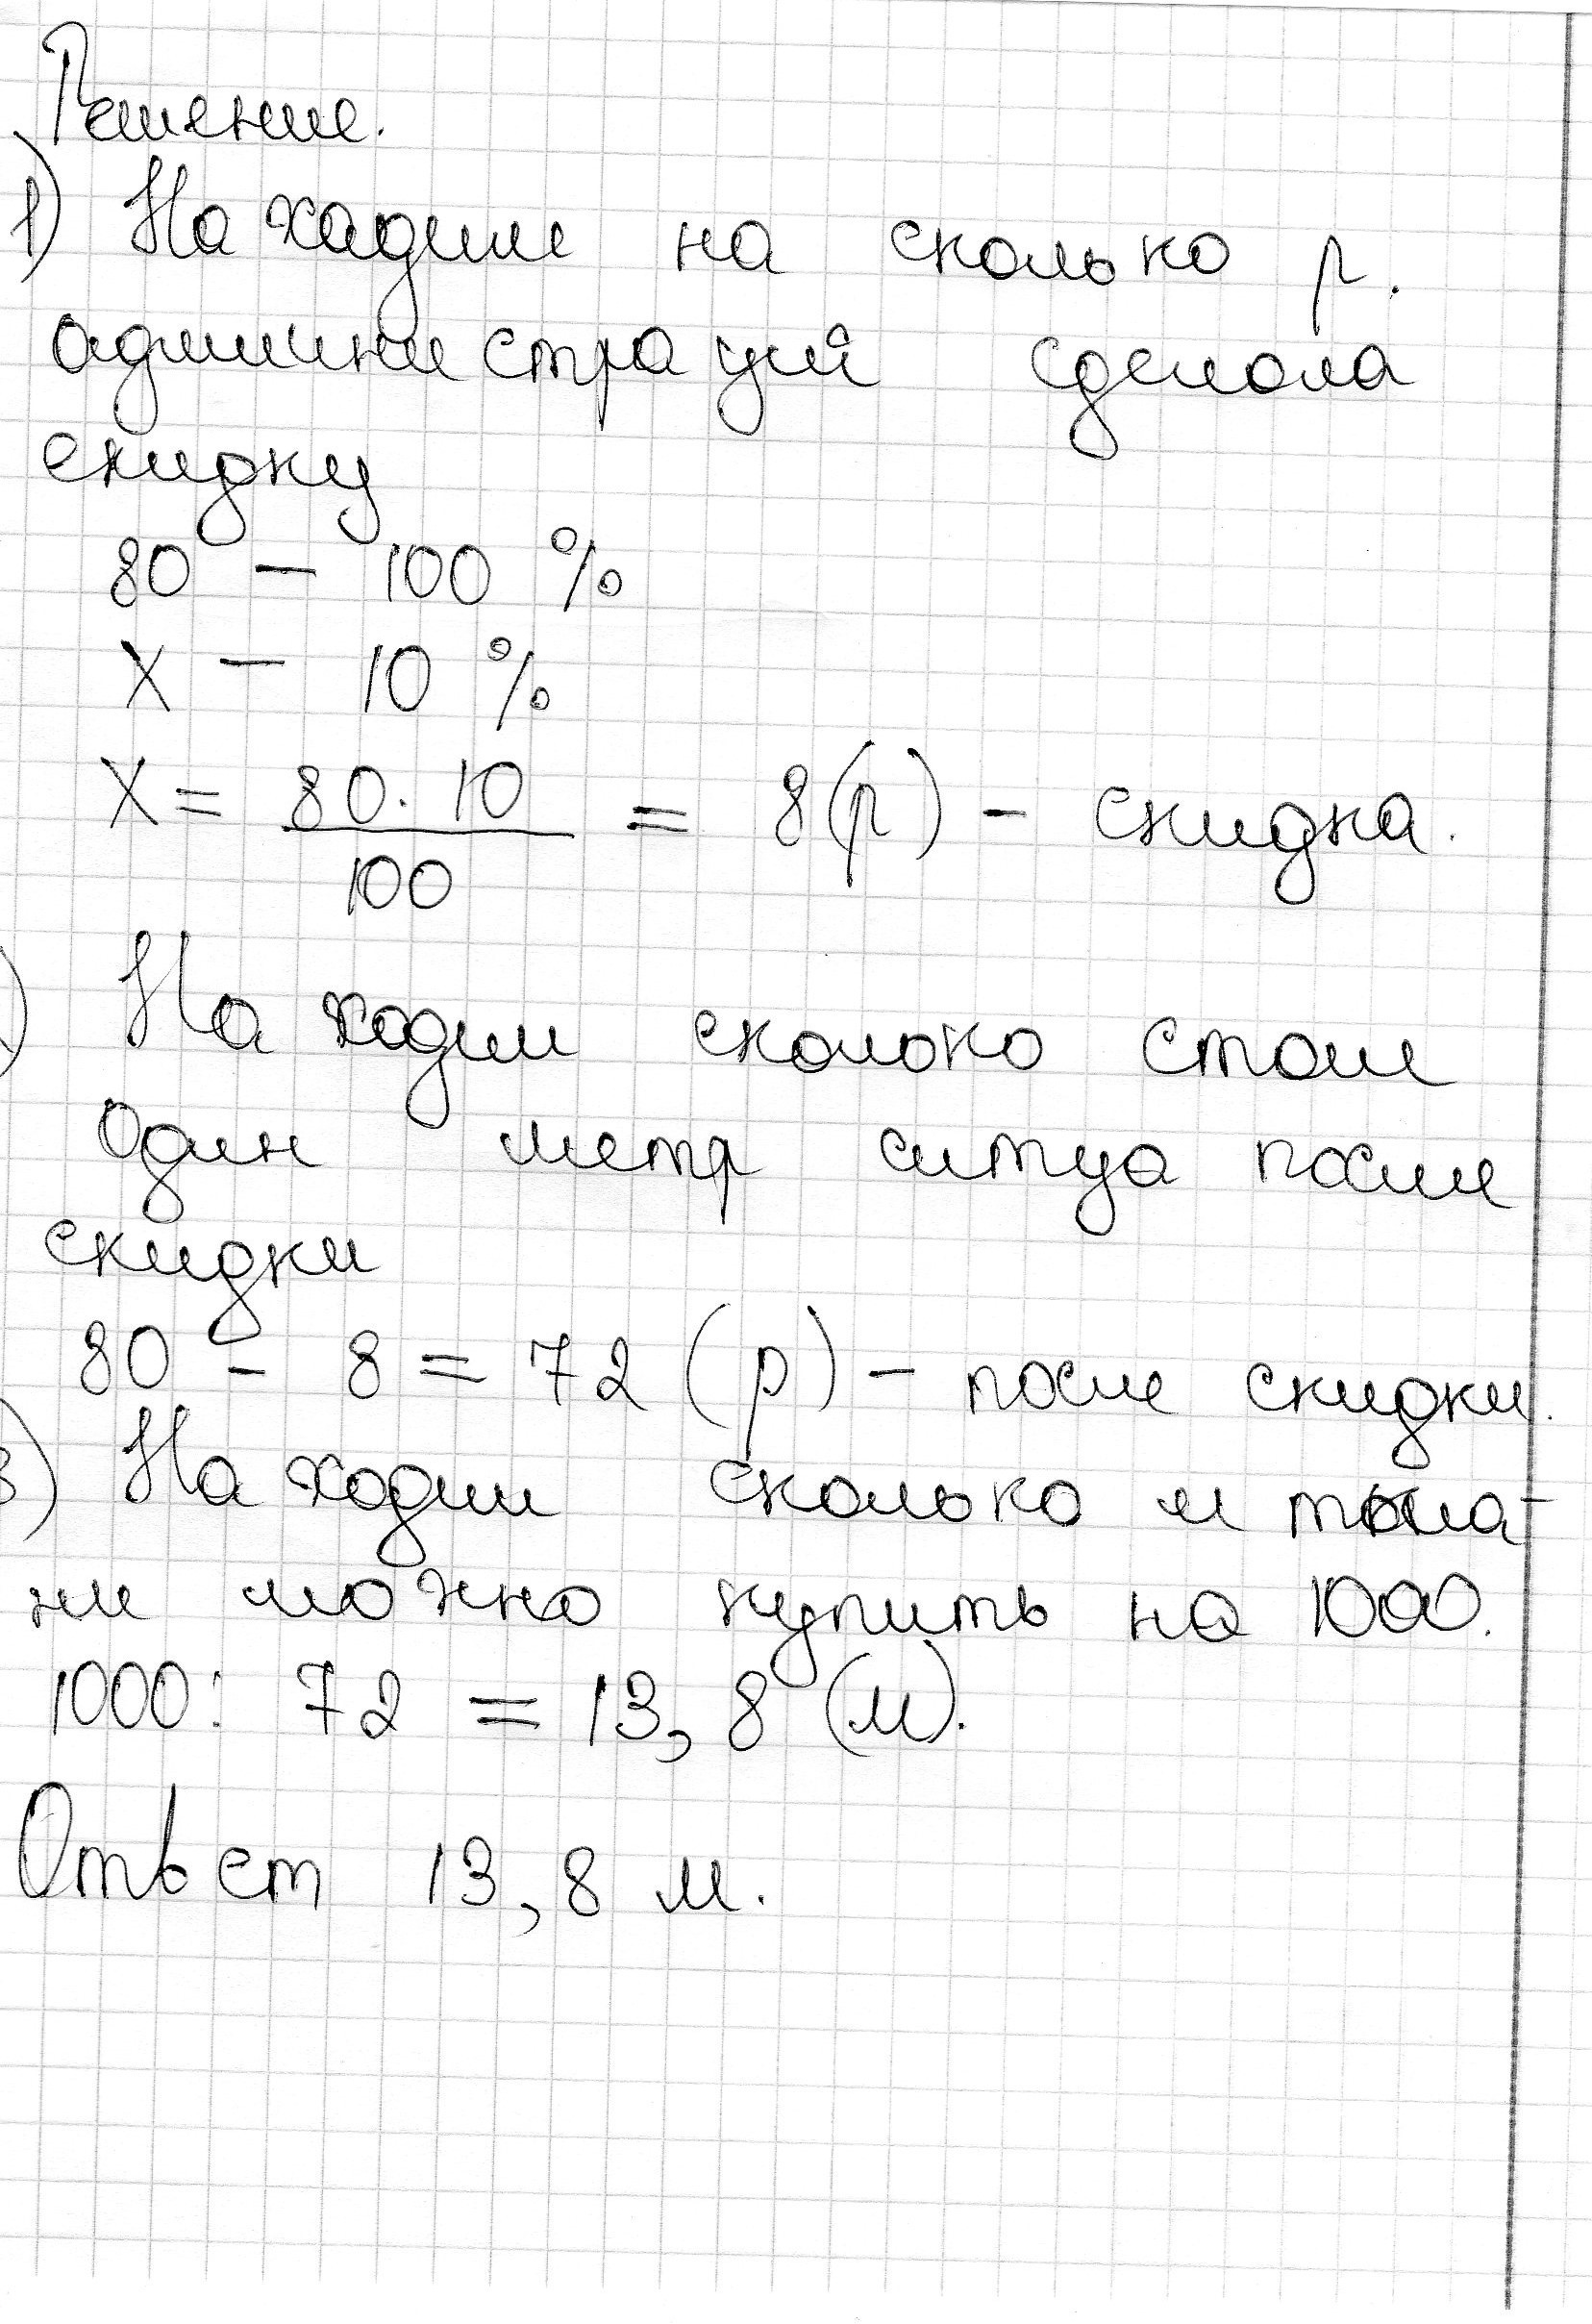 Решение.
1) Находим на сколько р.
администраций сделола
скидку
80 – 100 %
X – 10 %
X = 80 · 10 / 100 = 8(р) – скидка.
) Находим сколоко стоит
Один метр ситуа после
скидки
80 – 8 = 72 (р) – после скидки.
3) Находим сколько м тка-
ни можно купить на 1000.
1000 : 72 = 13,8 (м).
Ответ 13,8 м.